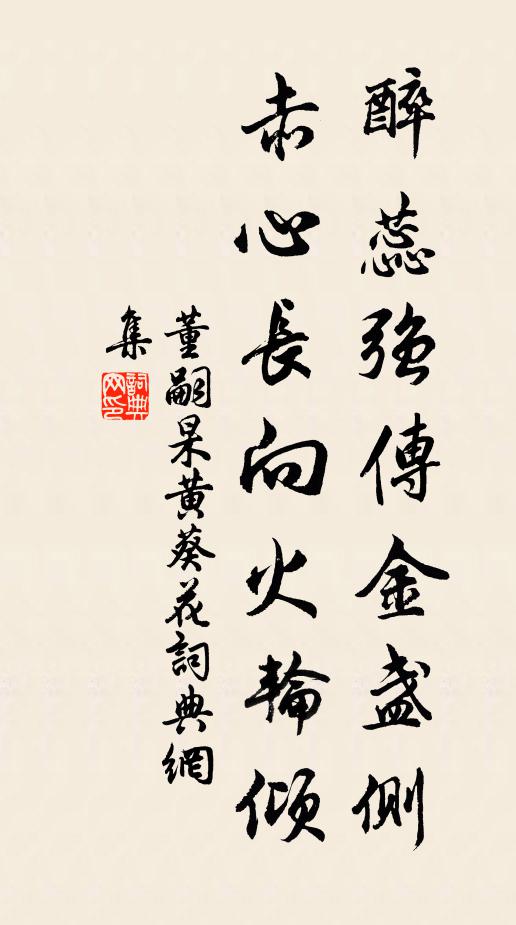 醉蕊强傳金盞側
赤心長向火輪傾
董嗣杲黄葵花詞典網
集
詞典网印